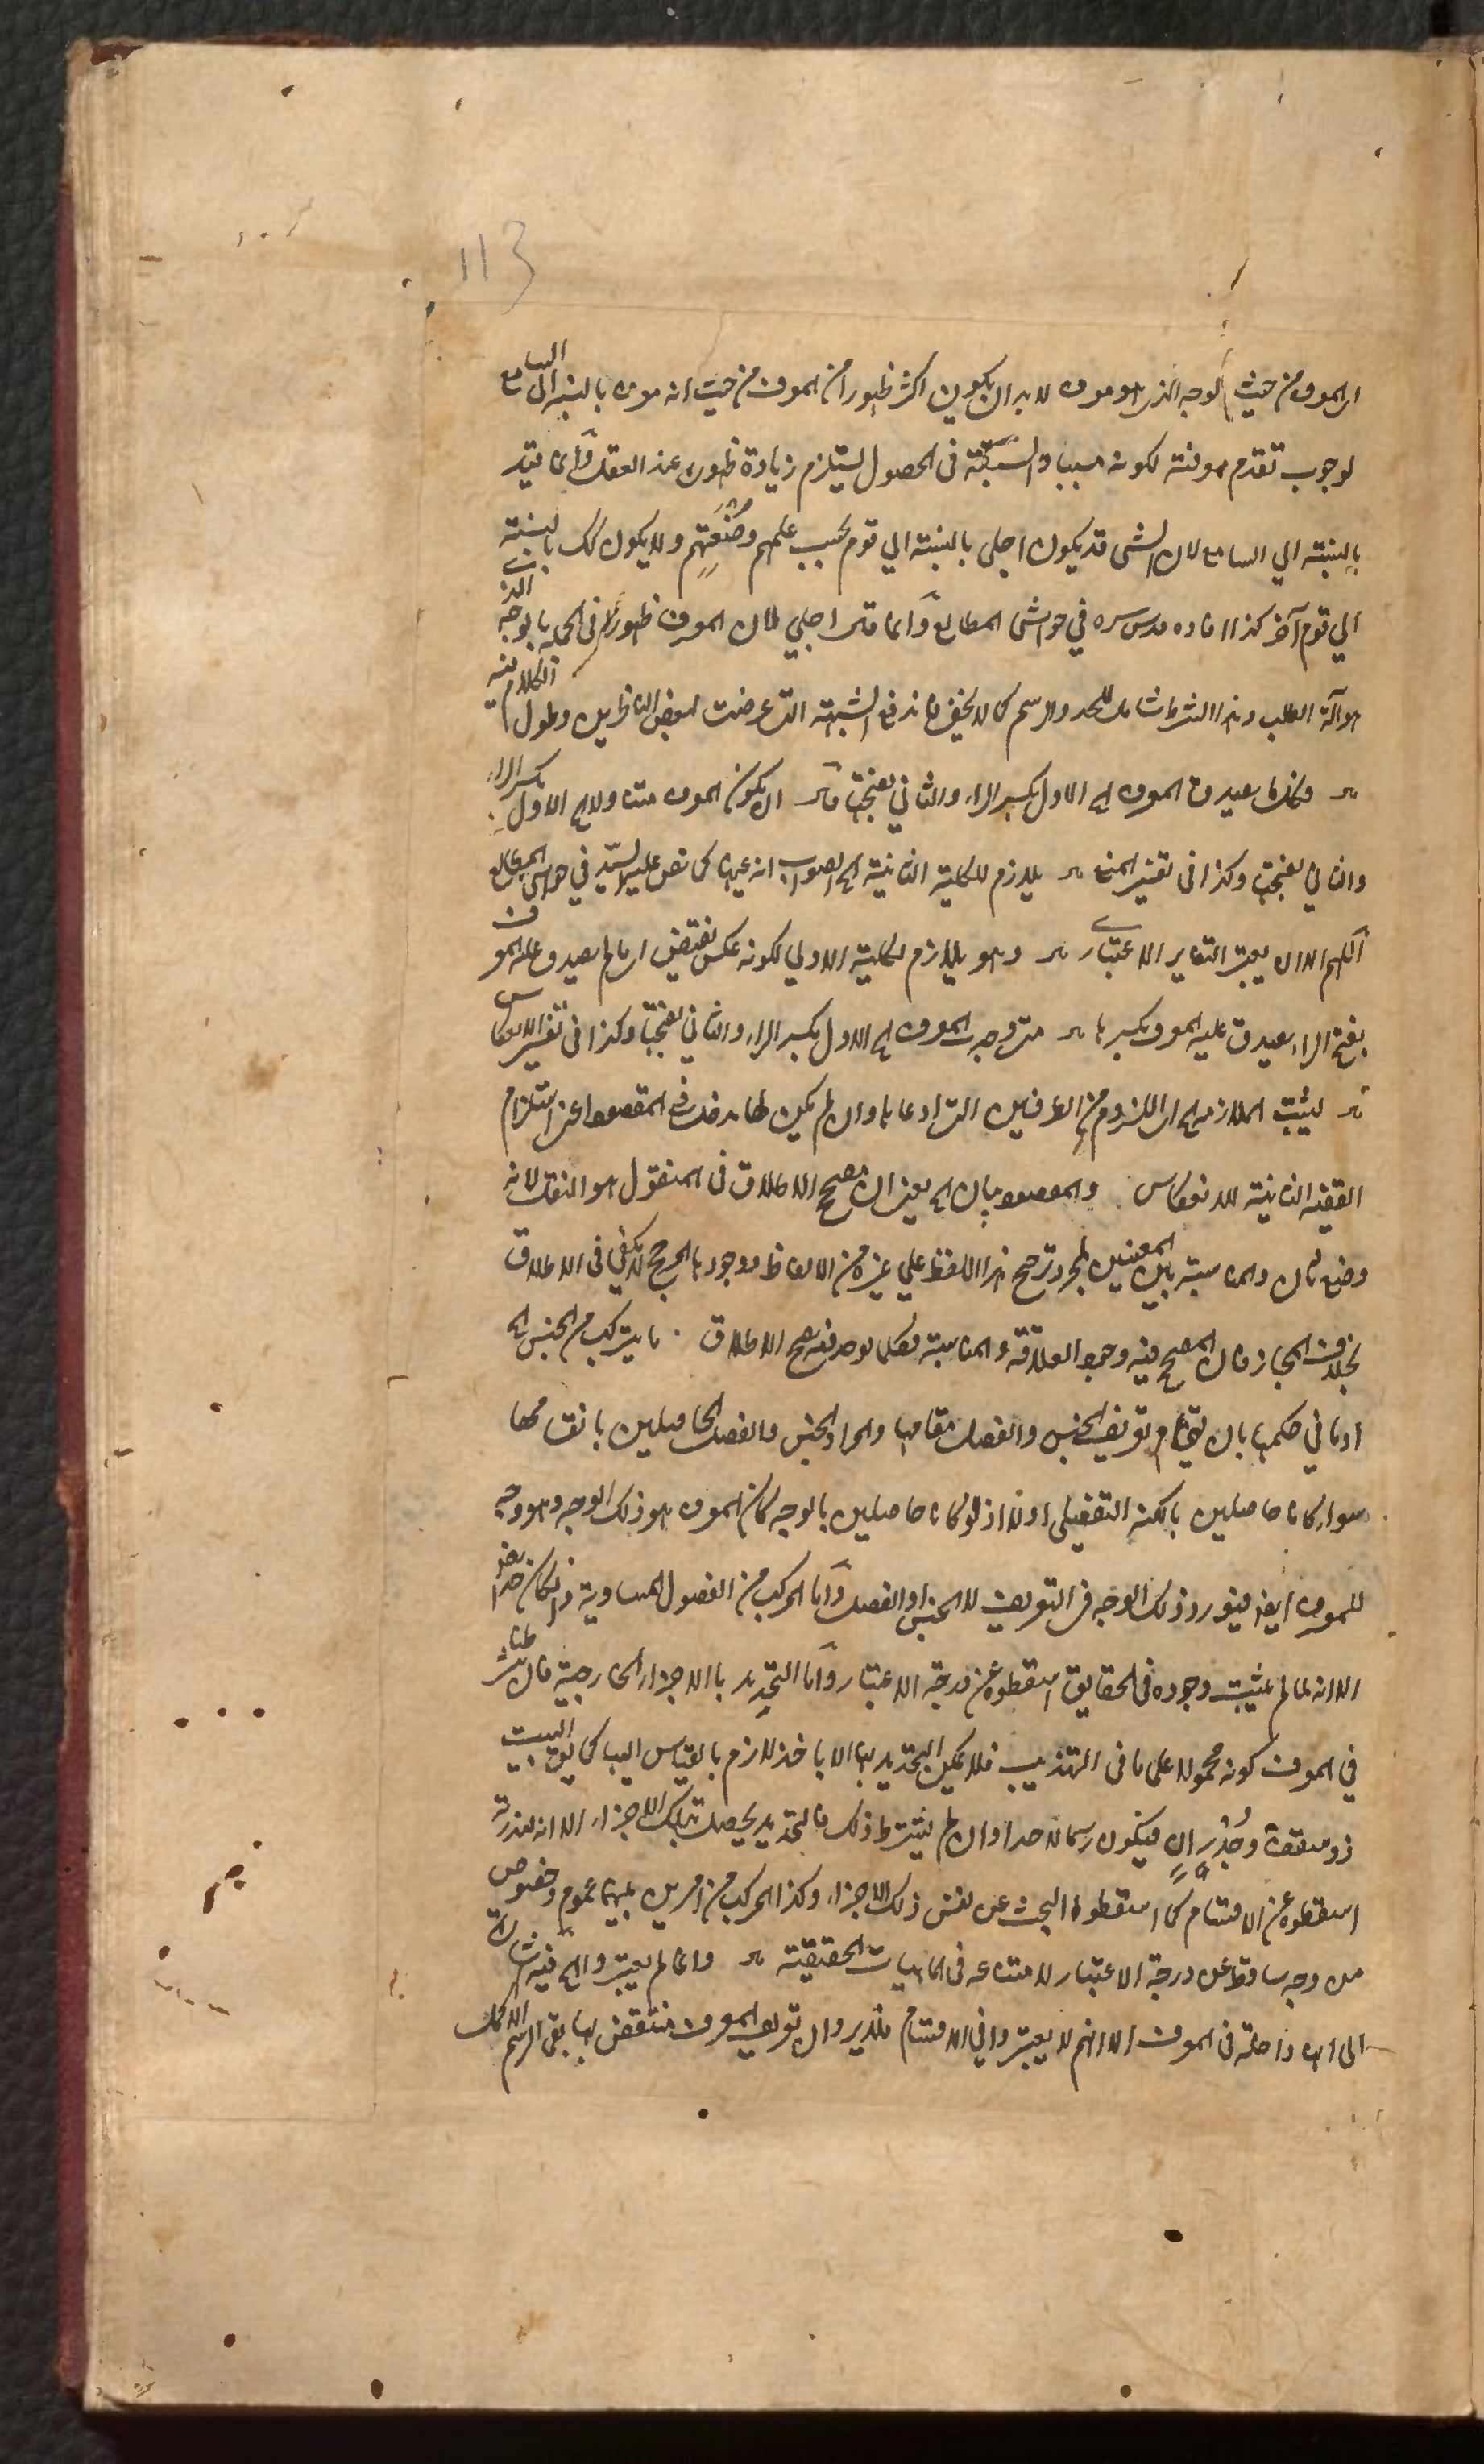 113
اى المعرف من حيث الوجه الذى هو معرف لا بد ان يكون اكثر ظهورا من المعرف من حيث انه معرف بالنسبة الى السامع
لوجوب تقدم معرفته لكونه سببا والسبقة فى الحصول يستلزم زيادة ظهوره عند العقل وانما قيد
بالنسبة الى السامع لان الشى قد يكون اجلى بالنسبة الى قوم بحسب علمهم وصنعتهم ولا يكون كك بالنسبة
الى قوم آخر كذا افاده قدس سره فى حواشى المطالع وانما قال اجلى لان المعرف ظهورا فى الجملة بالوجه الذى
هو آلة الطلب وهذا الشرط شامل للحد والرسم كما لا يخفى فاندفع الشبهة التى عرضت لبعض الناظرين وطول الكلام فيه
فكلما يصدق المعرف الخ الاول بكسر الراء والثانى بفتحها ان يكون المعرف متناولا الخ الاول بكسر الراء
والثانى بفتحها وكذا فى تفسير المنع يلازم للكلية الثانية الخ الصواب انه عينها كما نص عليه السيد فى حواشى المطالع
اللهم الا ان يعتبر التغاير الاعتبارى وهو يلازم لكلية الاولى لكونه عكس نقيض اى ما لم يصدق عليه المعرف
بفتح الراء يصدق عليه المعرف بكسرها متى وجد المعرف الخ الاول بكسر الراء والثانى بفتحها وكذا فى تفسير الانعكاس
ليثبت الملازمة الخ اى اللزوم من الطرفين التى ادعاها وان لم يكن لها مدخل فى المقصود اعنى استلزام
القضية الثانية للانعكاس والمقصود بيان الخ يعنى ان مصحح الاطلاق فى المنقول هو النقل لانه
وضع ثان والمناسبة بين المعنيين لمجرد ترجيح هذا اللفظ على غيره من الالفاظ فوجود المرجح لا يكفى فى الاطلاق
بخلاف المجاز فان المصحح فيه وجود العلاقة والمناسبة فكلما يوجد فيه يصح الاطلاق ما يتركب من الجنس الخ
او ما فى حكمها بان يقام تعريف الجنس والفصل مقامهما والمراد الجنس والفصل الحاصلين بانفسهما
سواء كانا حاصلين بالكنه التفصيلى اولا اذ لو كانا حاصلين بالوجه كان المعرف هو ذلك الوجه وهو وجه
للمعرف ايضا فيتصور ذلك الوجه فى التعريف لا الجنس او الفصل واما المركب من الفصول المساوية وان كان حدا ايضا
الا انه لما لم يثبت وجوده فى الحقايق اسقطوه عن درجة الاعتبار واما التحديد بالاجزاء الخارجية فان شرطنا
فى المعرف كونه محمولا على ما فى التهذيب فلا يمكن التحديد بها الا باخذ لازم بالقياس اليها كما يق البيت
ذو سقف وجدران فيكون رسما لا حدا وان لم يشترط ذلك فالتحديد يحصل بتلك الاجزاء الا انه لندرته
اسقطوه عن الاقسام كما اسقطوا البحث عن نفس ذلك الاجزاء وكذا المركب من امرين بينهما عموم وخصوص
من وجه ساقط عن درجة الاعتبار لامتناعه فى الماهيات الحقيقية وانما لم يعتبروا الخ فيه اشارة
الى انه داخلة فى المعرف الا انهم لا يعتبروا فى الاقسام فلا يرد ان تعريف المعرف منتقض بها بقى الرسم الاكمل